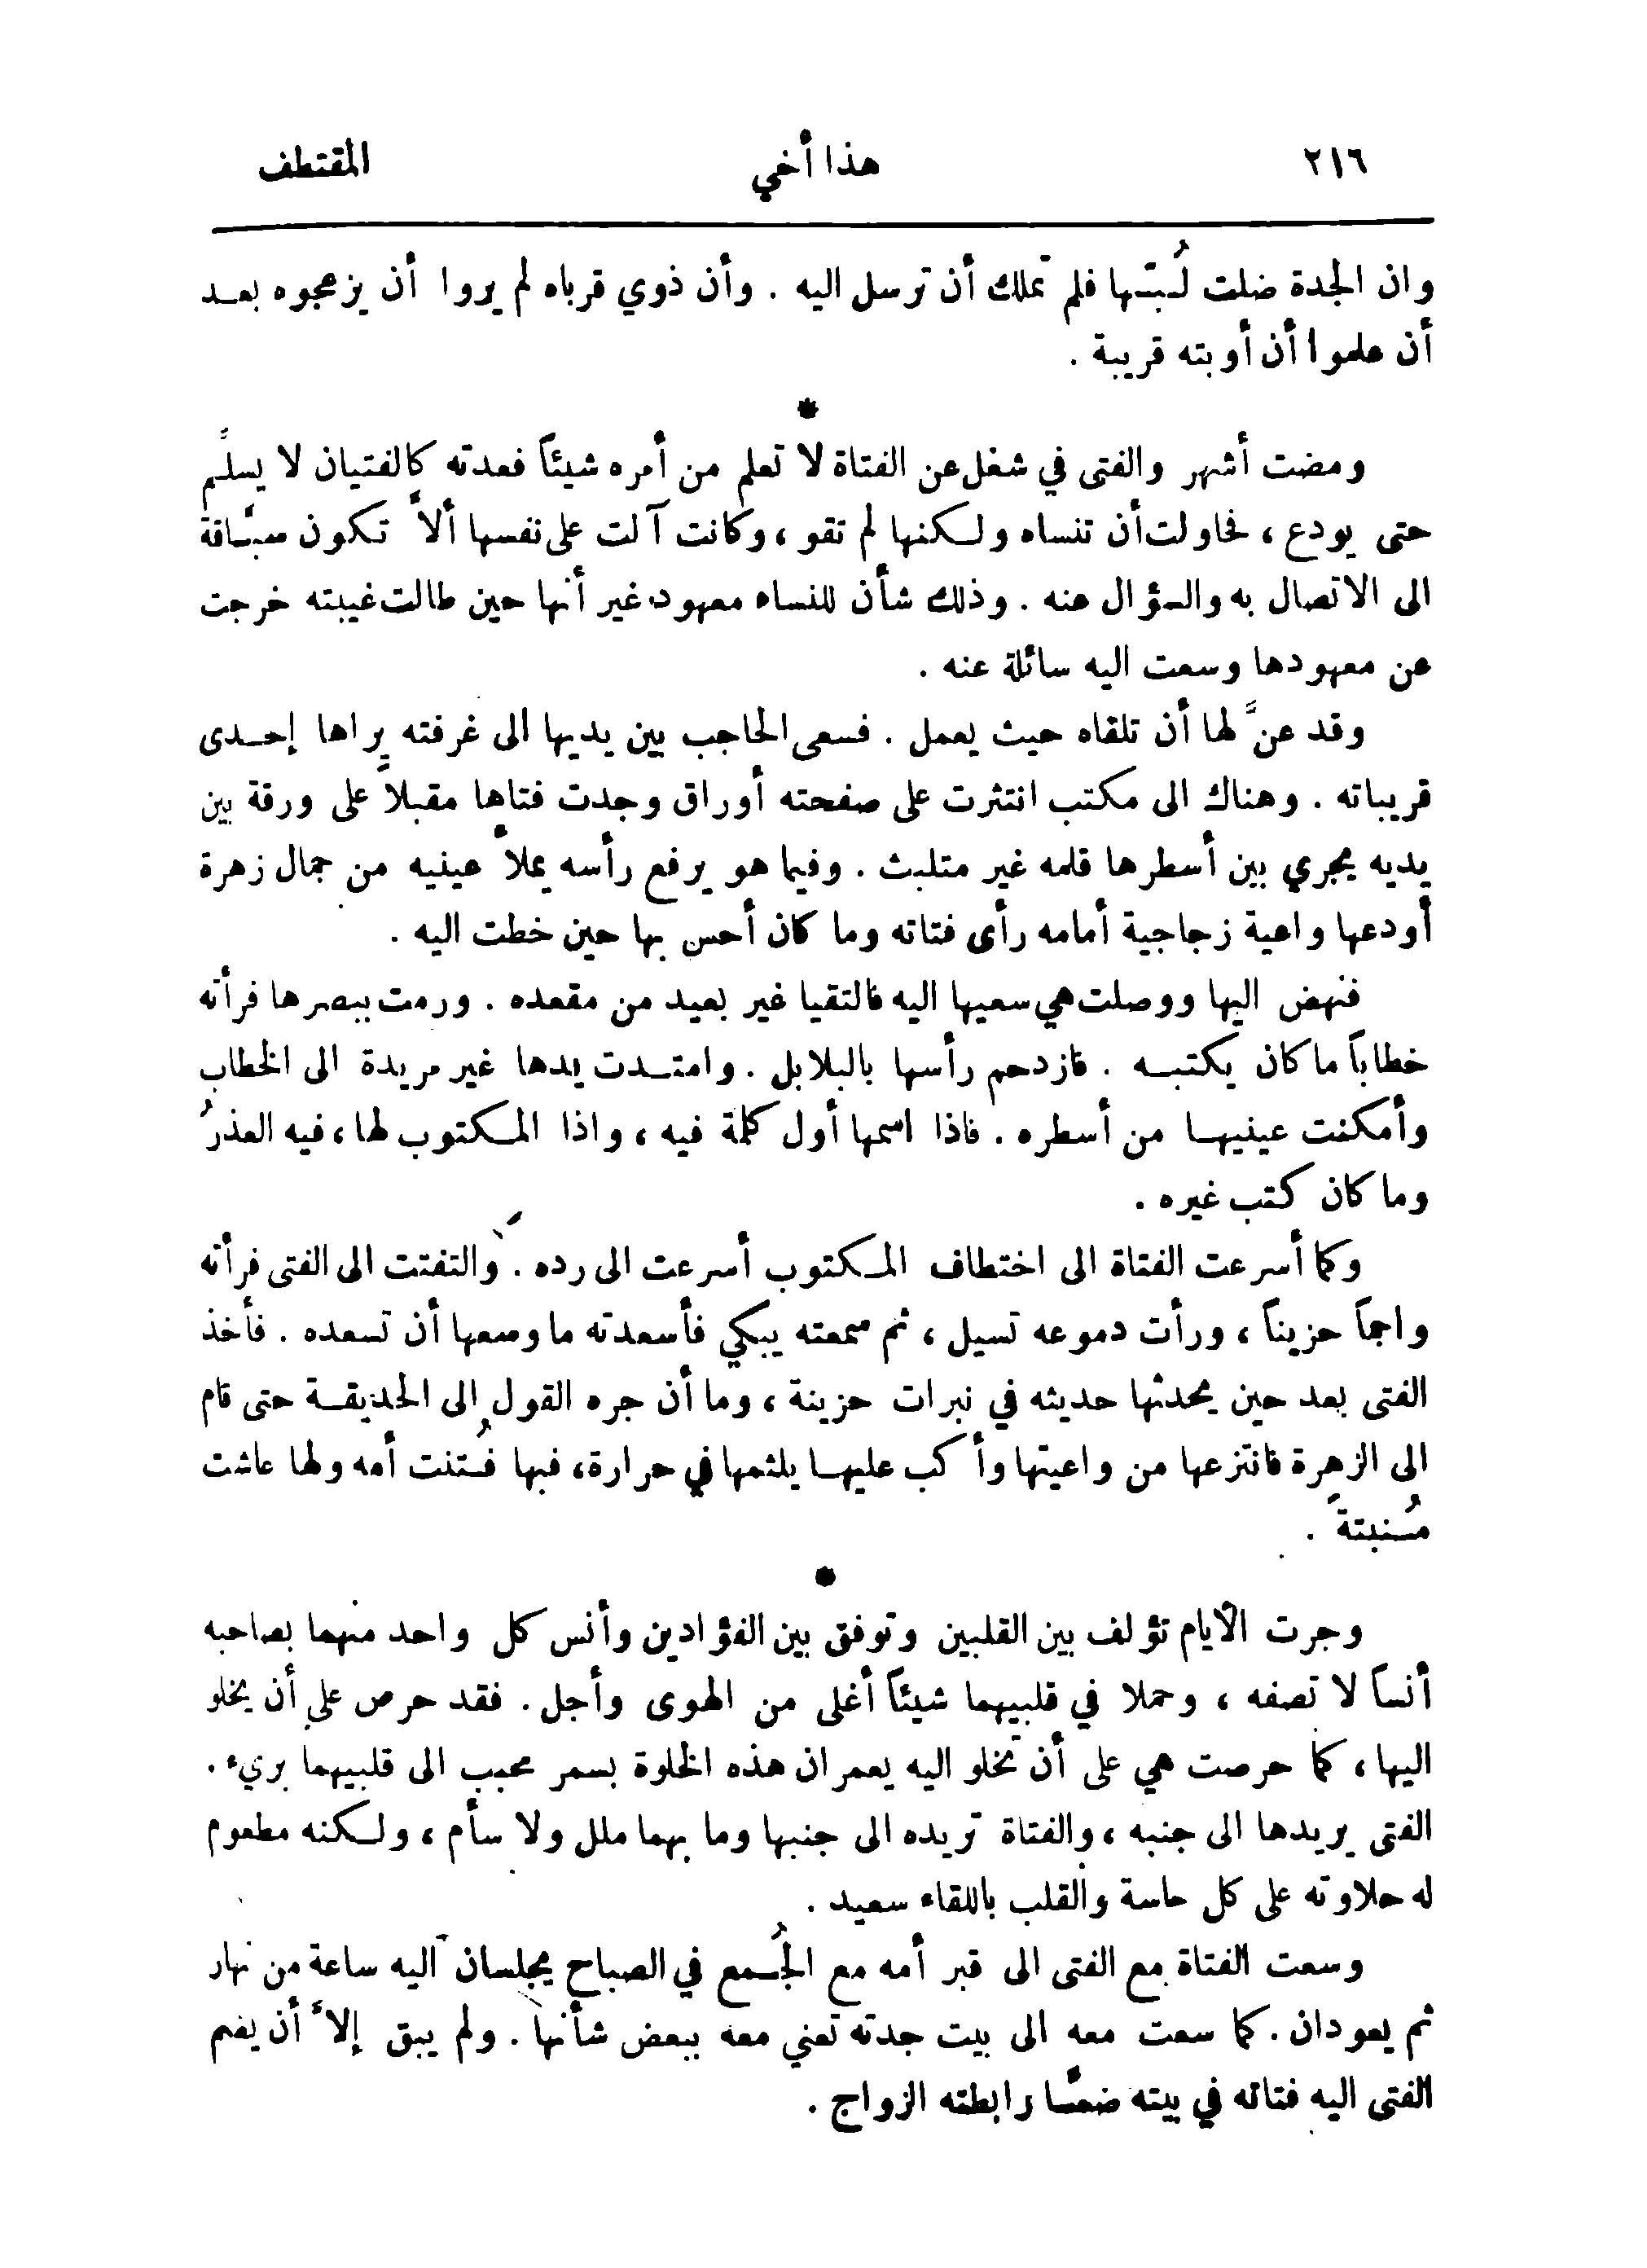 ٢١٦
هذا أخي
المقتطف
وان الجدة ضلت لُبتَّها فلم تملك أن ترسل اليه . وأن ذوي قرباه لم يروا أن يزعجوه بعد
أن علموا أن أوبته قريبة .
*
ومضت أشهر والفتى في شغل عن الفتاة لا تعلم من أمره شيئاً فعدته كالفتيان لا يسلِّم
حتى يودع ، فحاولت أن تنساه ولكنها لم تقو ، وكانت آلت على نفسها ألاَّ تكون سبَّاقة
الى الاتصال به والسؤال عنه . وذلك شأن للنساء معهود غير أنها حين طالت غيبته خرجت
عن معهودها وسعت اليه سائلة عنه .
وقد عنَّ لها أن تلقاه حيث يعمل . فسعى الحاجب بين يديها الى غرفته يراها إحدى
قريباته . وهناك الى مكتب انتثرت على صفحته أوراق وجدت فتاها مقبلاً على ورقة بين
يديه يجري بين أسطرها قلمه غير متلبث . وفيما هو يرفع رأسه يملأ عينيه من جمال زهرة
أودعها واعية زجاجية أمامه رأى فتاته وما كان أحس بها حين خطت اليه .
فنهض اليها ووصلت هي سعيها اليه فالتقيا غير بعيد من مقعده . ورمت ببصرها فرأته
خطاباً ما كان يكتبه . فازدحم رأسها بالبلابل . وامتدت يدها غير مريدة الى الخطاب
وأمكنت عينيها من أسطره . فاذا اسمها أول كلمة فيه ، واذا المكتوب لها ، فيه العذرُ
وما كان كتب غيره .
وكما أسرعت الفتاة الى اختطاف المكتوب أسرعت الى رده . والتفتت الى الفتى فرأته
واجماً حزيناً ، ورأت دموعه تسيل ، ثم سمعته يبكي فأسعدته ما وسعها أن تسعده . فأخذ
الفتى بعد حين يحدثها حديثه في نبرات حزينة ، وما أن جره القول الى الحديقة حتى قام
الى الزهرة فانتزعها من واعيتها وأكب عليها يلثمها في حرارة ، فبها فُتنت أمه ولها عاشت
مُنبتةً .
*
وجرت الأيام تؤلف بين القلبين وتوفق بين الفؤادين وأنس كل واحد منهما بصاحبه
أنساً لا تصفه ، وحملا في قلبيهما شيئاً أغلى من الهوى وأجل . فقد حرص على أن يخلو
اليها ، كما حرصت هي على أن تخلو اليه يعمران هذه الخلوة بسمر محبب الى قلبيهما بريء .
الفتى يريدها الى جنبه ، والفتاة تريده الى جنبها وما بهما ملل ولا سأم ، ولكنه مطعوم
له حلاوته على كل حاسة والقلب باللقاء سعيد .
وسعت الفتاة مع الفتى الى قبر أمه مع الجُمع في الصباح يجلسان اليه ساعة من نهار
ثم يعودان . كما سعت معه الى بيت جدته تعني معه ببعض شأنها . ولم يبق إلاَّ أن يضم
الفتى اليه فتاته في بيته ضمًّا رابطته الزواج .